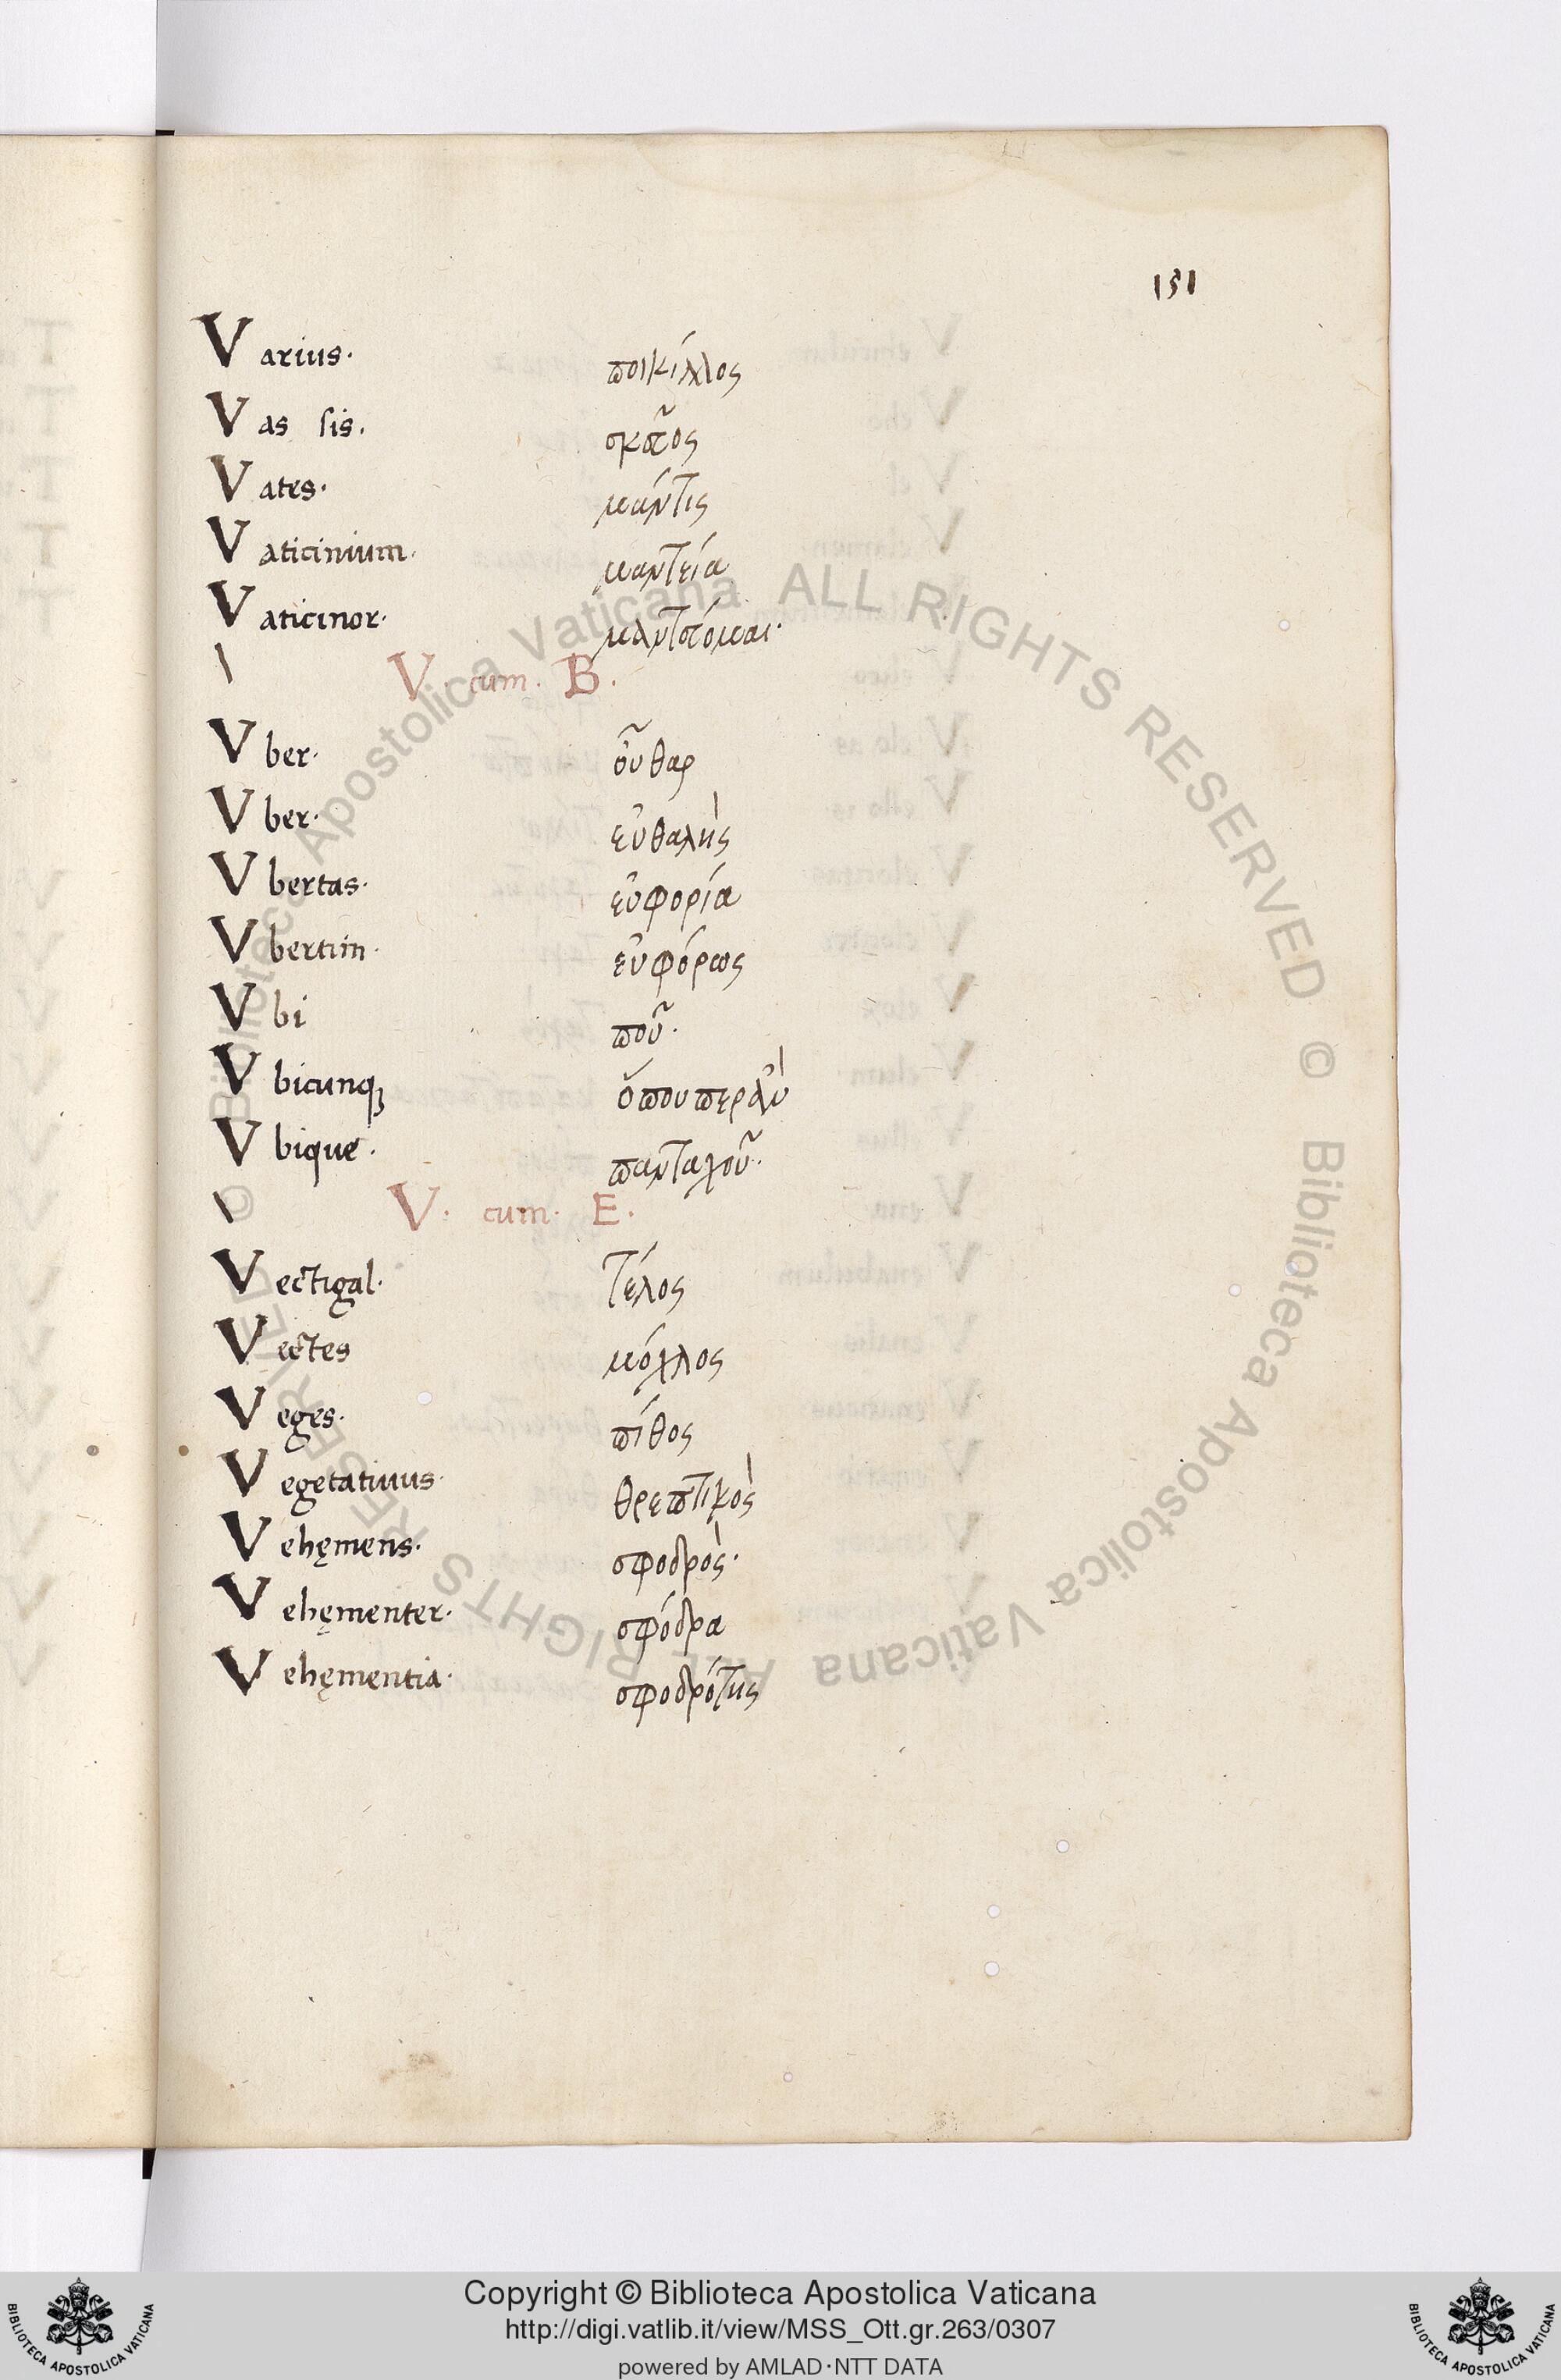 151
Varius· ποικίλλος
Vas sis. σκεῦος
Vates· μάντις
Vaticinium· μαντεία
Vaticinor· μαντεύομαι·
V· cum· B·
Vber· οὖθαρ
Vber· εὐθαλὴς
Vbertas· εὐφορία
Vbertim· εὐφόρως
Vbi ποῦ·
Vbicunqꝫ ὅπουπερἂν
Vbique· πανταχοῦ·
V· cum· E·
Vectigal· τέλος
Vectes μόχλος
Veges· πίθος
Vegetatiuus· θρεπτικὸς
Vehęmens· σφοδρὸς·
Vehęmenter· σφόδρα
Vehęmentia· σφοδρότης
© Biblioteca Apostolica Vaticana ALL RIGHTS RESERVED © Biblioteca Apostolica Vaticana ALL RIGHTS RESERVED
Copyright © Biblioteca Apostolica Vaticana
http://digi.vatlib.it/view/MSS_Ott.gr.263/0307
powered by AMLAD·NTT DATA
BIBLIOTECA APOSTOLICA VATICANA
BIBLIOTECA APOSTOLICA VATICANA